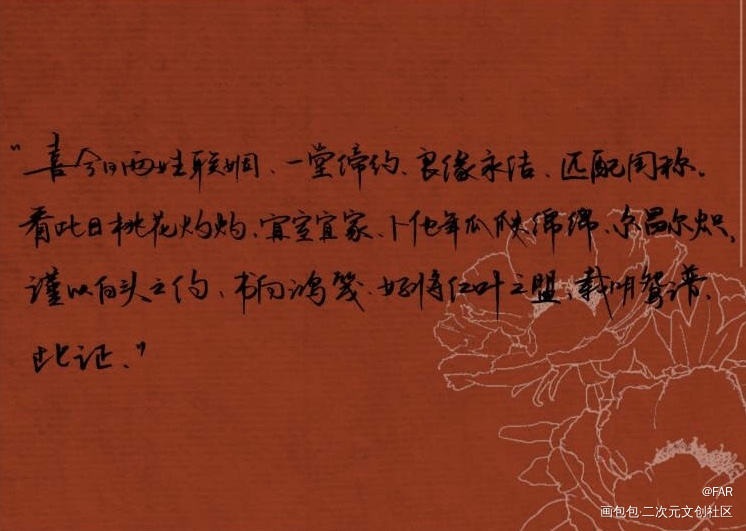 “喜今日两姓联姻、一堂缔约、良缘永结、匹配同称。
看此日桃花灼灼、宜室宜家、卜他年瓜瓞绵绵、尔昌尔炽、
谨以白头之约、书向鸿笺、好将红叶之盟、载明鸳谱、
此证、”
@FAR
画包包·二次元文创社区